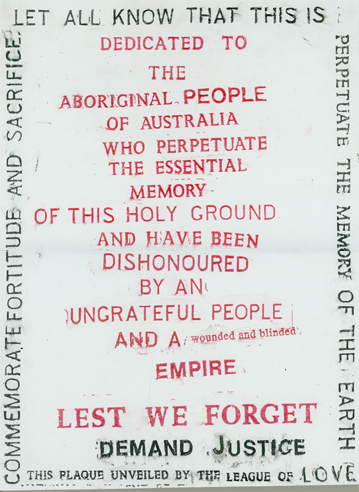 LET ALL KNOW THAT THIS IS
DEDICATED TO
THE
ABORIGINAL PEOPLE
OF AUSTRALIA
WHO PERPETUATE
THE ESSENTIAL
MEMORY
OF THIS HOLY GROUND
AND HAVE BEEN
DISHONOURED
BY AN
UNGRATEFUL PEOPLE
AND A wounded and blinded
EMPIRE
LEST WE FORGET
DEMAND JUSTICE
THIS PLAQUE UNVEILED BY THE LEAGUE OF LOVE
COMMEMORATE FORTITUDE AND SACRIFICE
PERPETUATE THE MEMORY OF THE EARTH